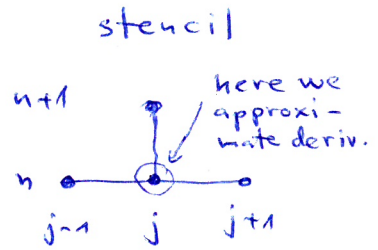 stencil
here we
n+1 approxi-
mate deriv.
n
j-1 j j+1